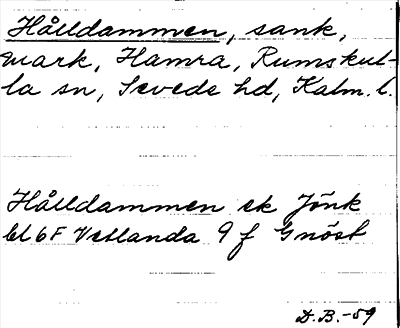 Hålldammen, sank,
mark, Hamra, Rumskul-
la sn, Sevede hd, Kalm. l.
Hålldammen ek Jönk
bl 6F Vetlanda 9 f Gnöst
D.B.-59